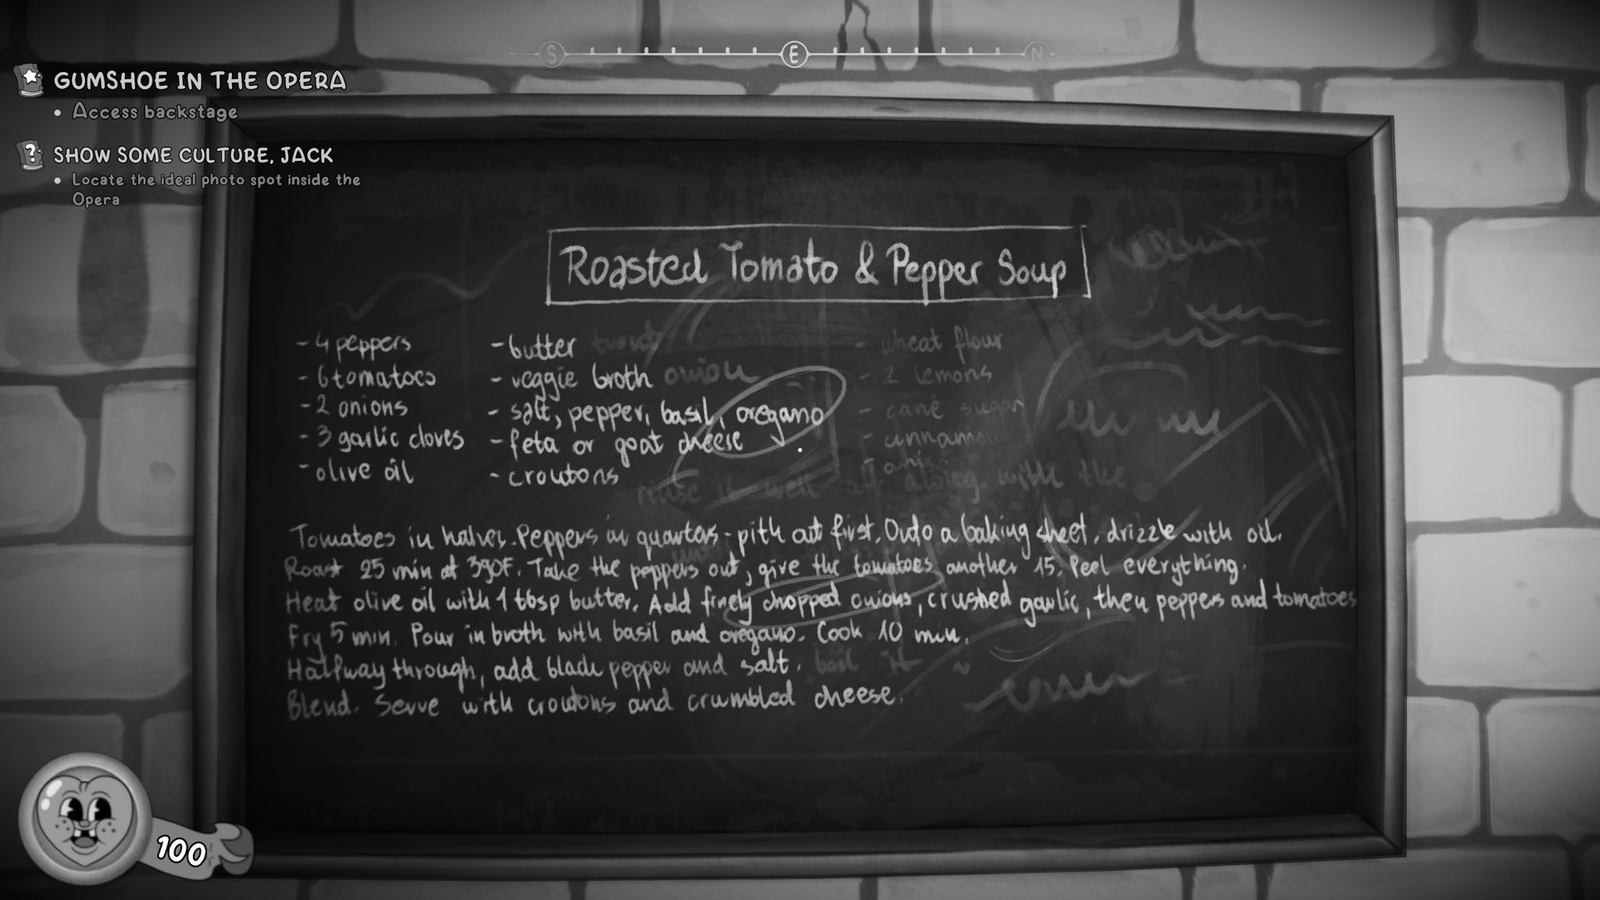 S E N
GUMSHOE IN THE OPERA
• Access backstage
SHOW SOME CULTURE, JACK
• Locate the ideal photo spot inside the
Opera
Roasted Tomato & Pepper Soup
- 4 peppers
- 6 tomatoes
- 2 onions
- 3 garlic cloves
- olive oil
- butter
- veggie broth onion
- salt, pepper, basil, oregano
- feta or goat cheese
- croutons
- wheat flour
- 2 lemons
- cane sugar
- cinnamon
rinse it well all along with the
Tomatoes in halves. Peppers in quarters - pith out first. Onto a baking sheet, drizzle with oil.
Roast 25 min at 390F. Take the peppers out, give the tomatoes another 15. Peel everything.
Heat olive oil with 1 tbsp butter. Add finely chopped onions, crushed garlic, then peppers and tomatoes
Fry 5 min. Pour in broth with basil and oregano. Cook 10 min.
Halfway through, add black pepper and salt. boil it
Blend. Serve with croutons and crumbled cheese.
100